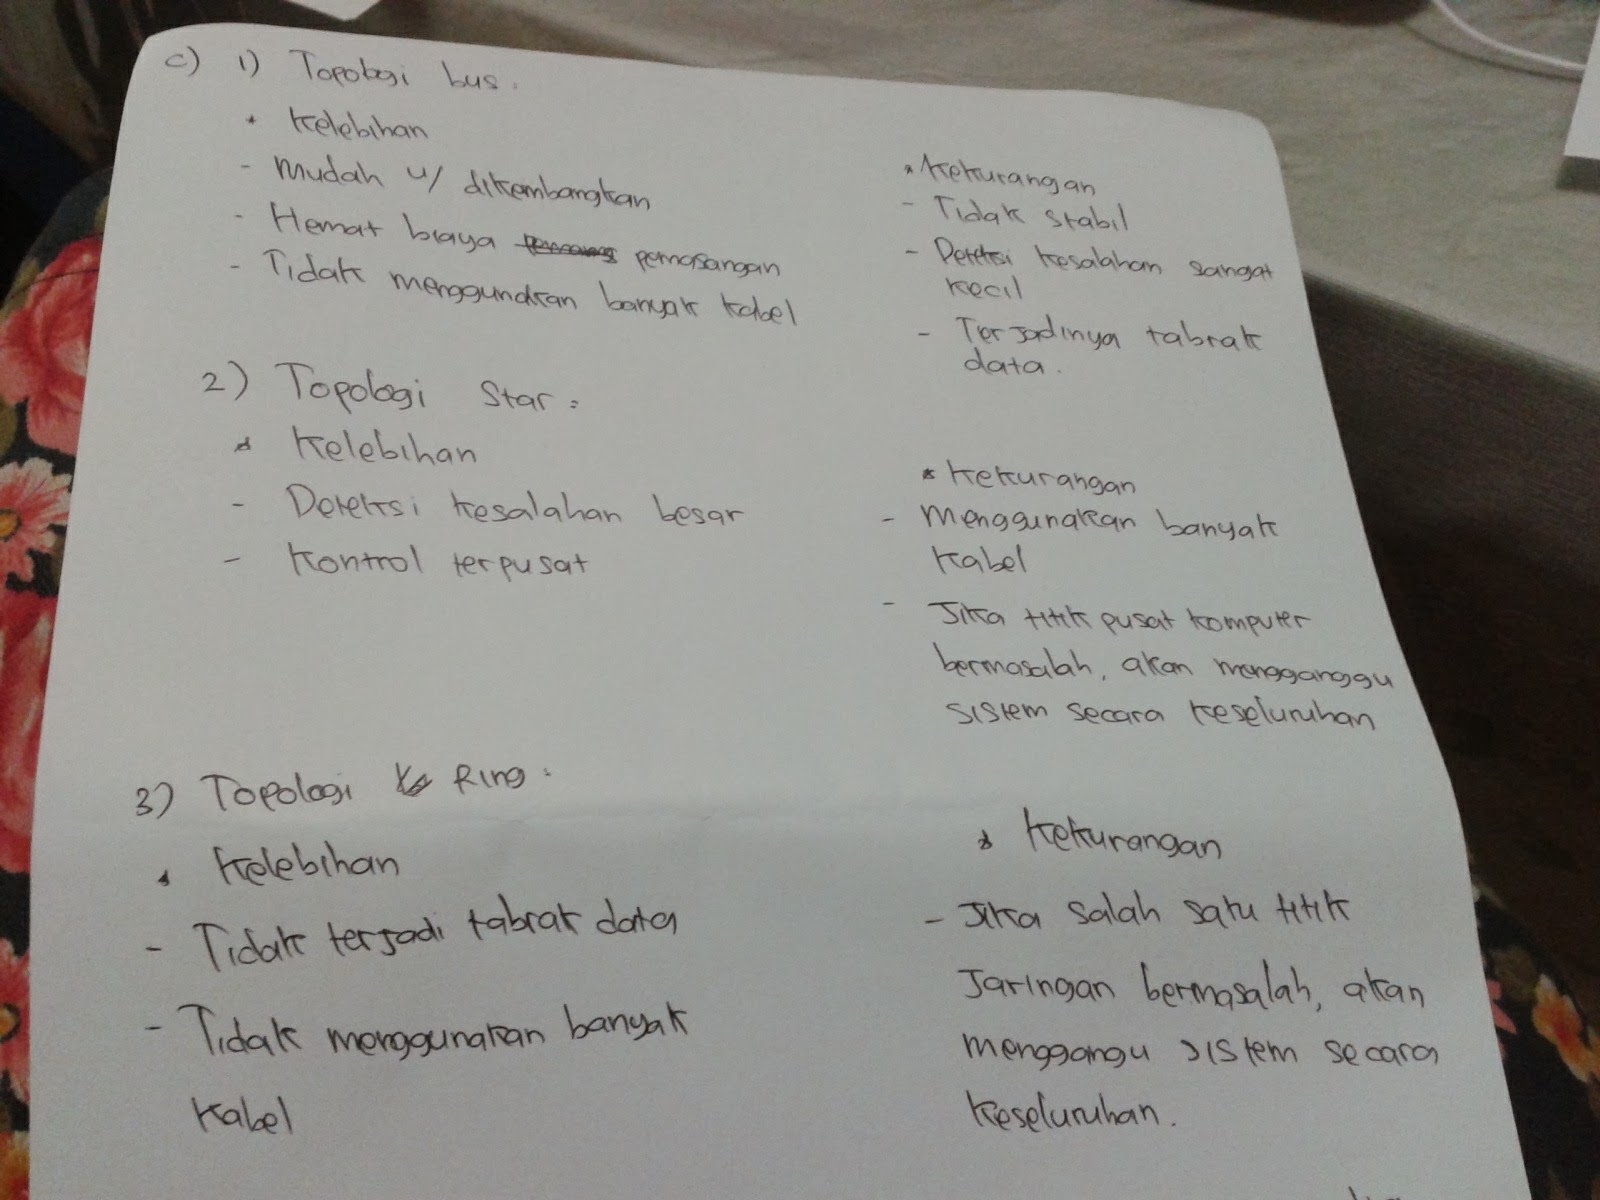 c) 1) Topologi bus.
* Kelebihan
- Mudah u/ dikembangkan
- Hemat biaya pemasangan
- Tidak menggunakan banyak kabel
* Kekurangan
- Tidak stabil
- Deteksi kesalahan sangat
kecil
- Terjadinya tabrak
data.
2) Topologi Star :
* Kelebihan
- Deteksi kesalahan besar
- Kontrol terpusat
* Kekurangan
- Menggunakan banyak
kabel
- Jika titik pusat komputer
bermasalah, akan mengganggu
sistem secara keseluruhan
3) Topologi Ring :
* Kelebihan
- Tidak terjadi tabrak data
- Tidak menggunakan banyak
kabel
* Kekurangan
- Jika salah satu titik
Jaringan bermasalah, akan
menggangu sistem secara
keseluruhan.